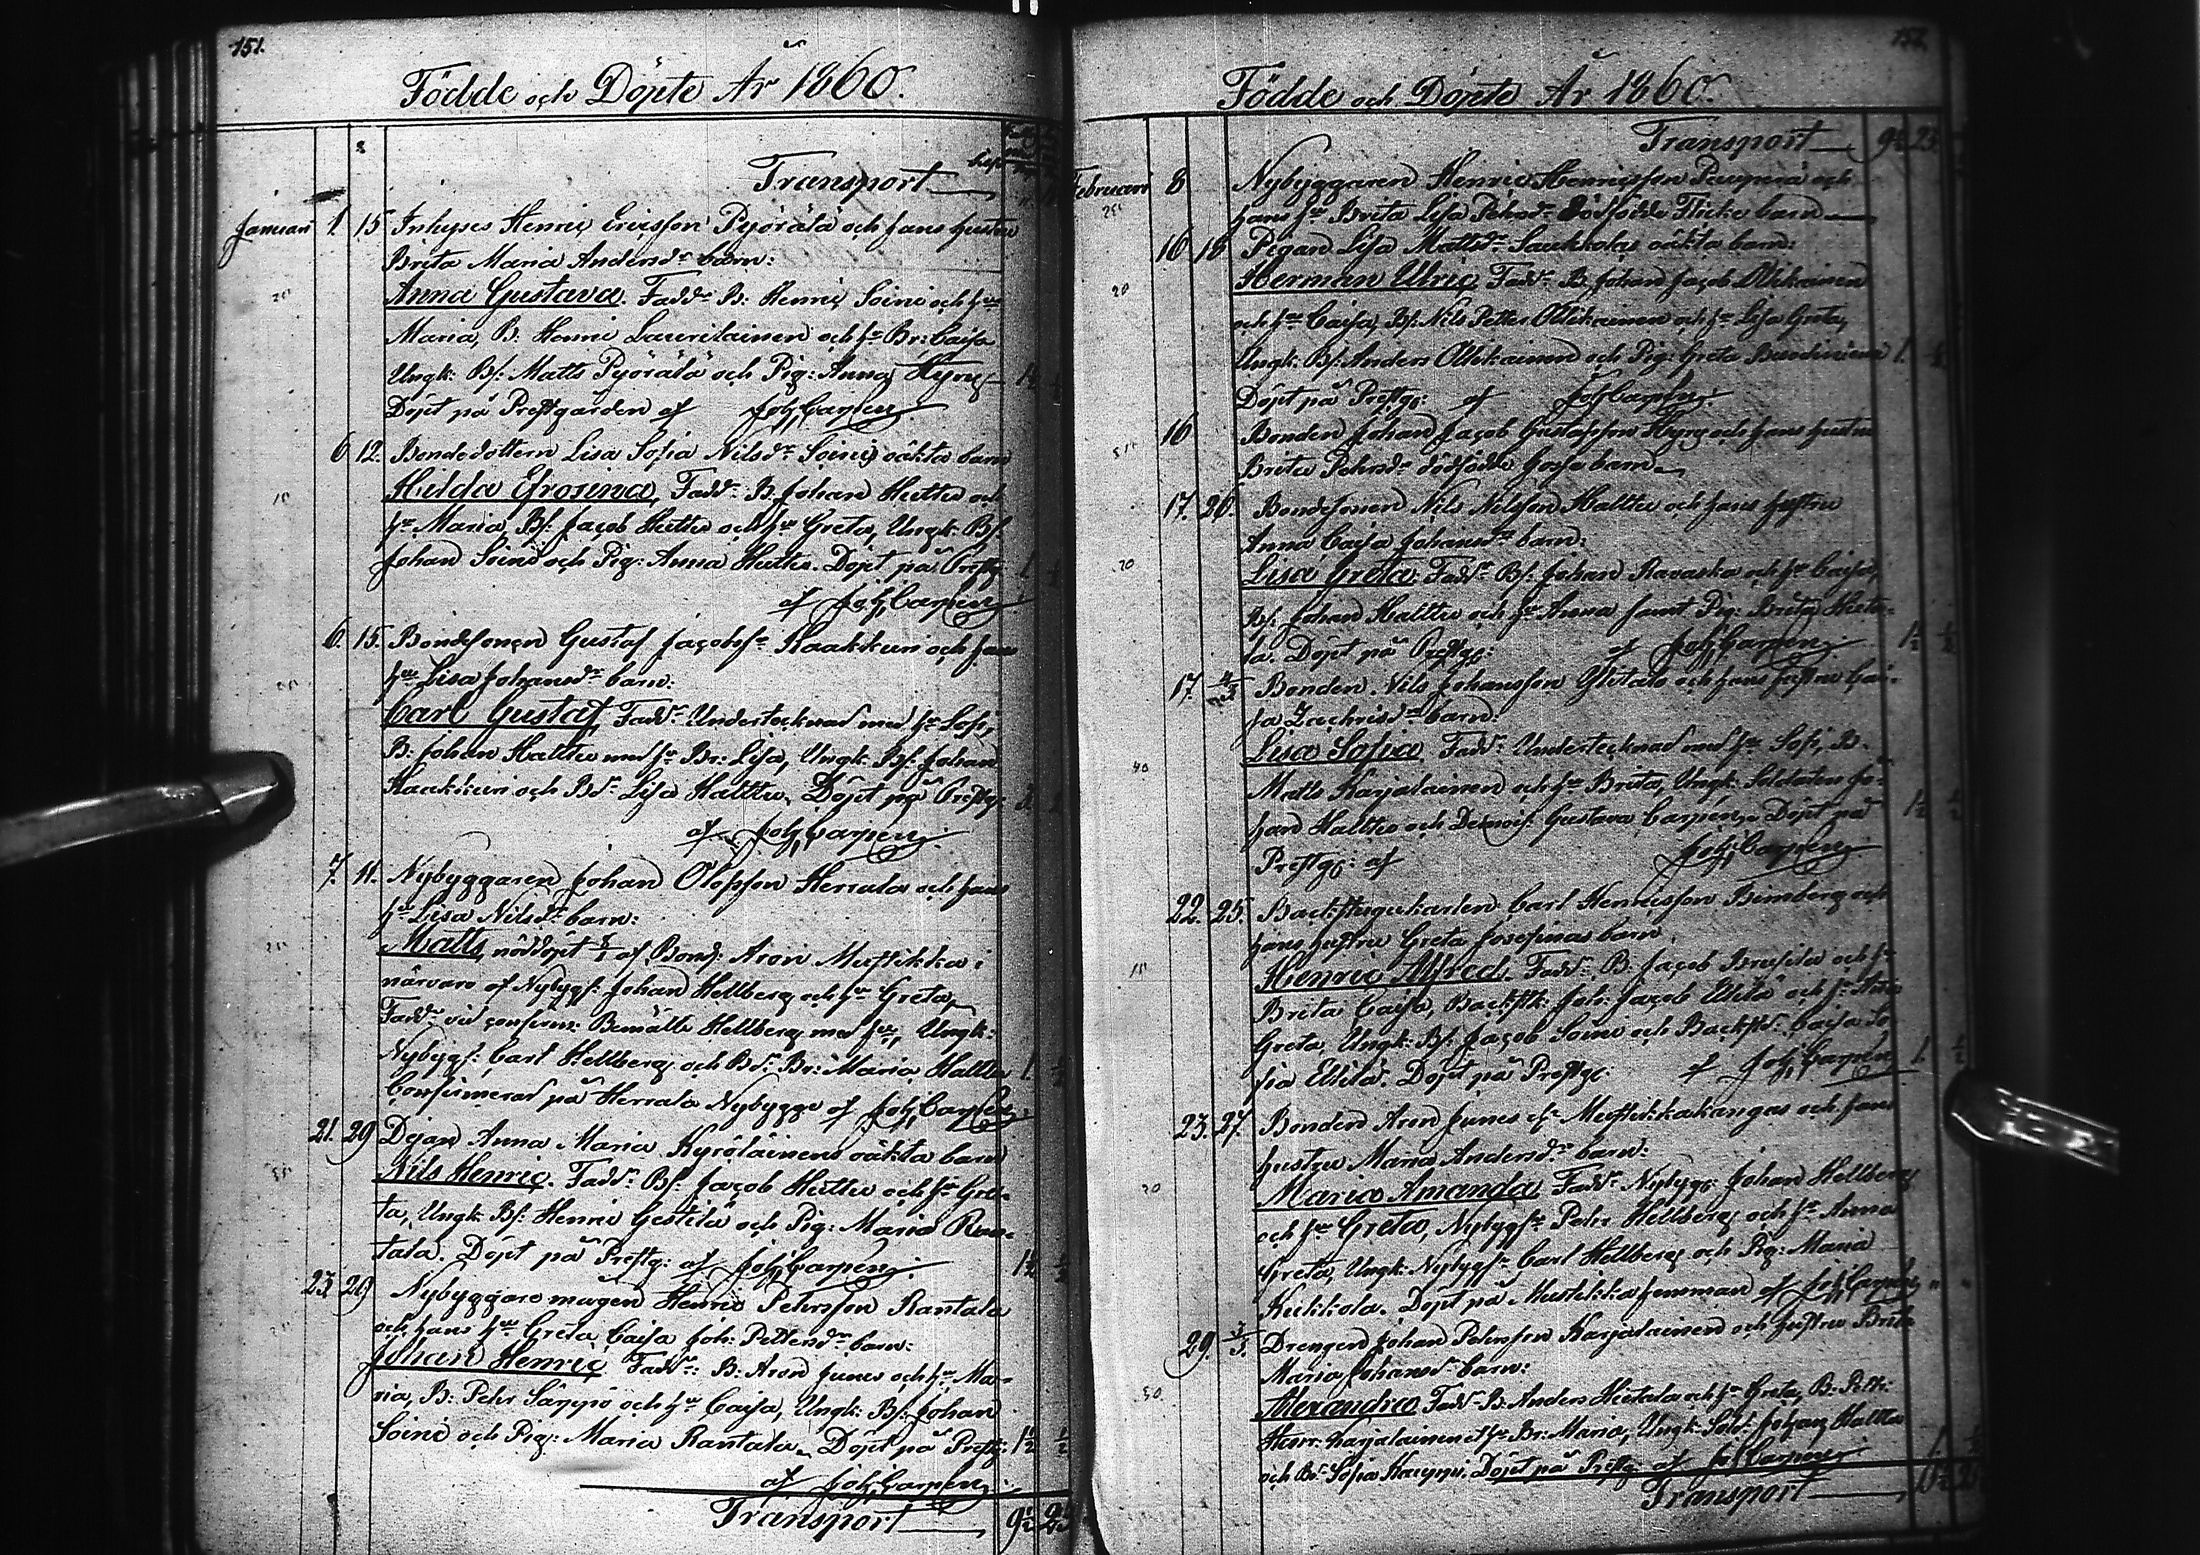 151.
Födde och Döpte År 1860.
Transport
Januari 1 15 Inhyses Henric Ericsson Pyörälä och hans hustru
Brita Maria Andersdr barn:
Anna Gustava. Fadd: B: Henric Soini och hu
Maria, B: Henric Laurilainen och hu Br: Caisa
Ungk: Bs: Matts Pyörälä och Pig: Anna Kyrö
Döpt på Prestgården af Joh, Carpen
6 12. Bondedottern Lisa Sofia Nilsdr Soinis oäkta barn
Hilda Efrosina, Fadd: B. Johan Huttu och
hu Maria, Bs: Jacob Huttu och hu Greta, Ungk: Bs:
Johan Soini och Pig: Anna Huttu. Döpt på Prestg: 1 ½
af Joh, Carpen
6. 15. Bondsonen Gustaf Jacobss Haakkuri och hans
hu Lisa Johansdr barn:
Carl Gustaf, Fadd: Undertecknad med hu Sofi,
B: Johan Halttu med hu Br: Lisa, Ungk: Bs: Johan
Haakkuri och Bdr Lisa Halttu. Döpt på Prestg:
af Joh, Carpen
7. 11. Nybyggaren Johan Olofsson Herrala och hans
hu Lisa Nilsdr barn:
Matts, nöddöpt 8/1 af Bond: Aron Mustikka i
närvaro af Nybygs: Johan Hellberg och hu Greta,
Fadd: vid confirm: Bemälte Hellberg med hu, Ungk:
Nybygs: Carl Hellberg och Bdr Br: Maria Halttu 1 ½
Confirmerad på Herrala Nybygge af Joh, Carpen
21. 29 Pigan Anna Maria Kyröläinens oäkta barn
Nils Henric. Fadd: Bs: Jacob Huttu och hu Gre-
ta, Ungk: Bs: Henric Gestilä och Pig: Maria Ran-
tala. Döpt på Prestg: af Joh, Carpen 1½ ½
23 29 Nybyggare mågen Henric Petersson Rantala
och hans hu Greta Caisa Joh: Pettersdr barn:
Johan Henric Fadd: B: Aron Junes och hu Ma-
ria, B: Pehr Säppö och hu Caisa, Ungk: Bs: Johan
Soini och Pig: Maria Rantala. Döpt på Prestg: 1½ ½
af Joh, Carpen
Transport 9½
152.
Födde och Döpte År 1860.
Transport 9½ 23
Februari 8 Nybyggaren Henric Henricsson och
hans hu Brita Lisa Pehrsdr dödfödda Flicke barn
16 18 Pigan Lisa Mattsdr Laukkolas oäkta barn:
Herman Ulric, Fadd: B. Johan Jacob Ollikainen
och hu Caisa, Bs: Nils Petter Ollikainen och hu Lisa Greta,
Ungk: Bs: Anders Ollikainen och Pig: Greta 1. ½
Döpt på Prestg: af Joh, Carpen
16 Bonden Johan Jacob Gustafsson Kyrö och hans hustru
Brita Pehrsdr dödfödda Gosse barn
17. 26. Bondsonen Nils Nilsson Halttu och hans hustru
Anna Caisa Johansdr barn:
Lisa Greta: Fadd: Bs: Johan Ravaska och hu Caisa,
Bs: Johan Halttu och hu Anna samt Pig: Brita Hieta-
la. Döpt på Prestg: af Joh, Carpen 1½ ½
17. 4/3 Bonden Nils Johansson Ylitalo och hans hustru Cai-
sa Zachrisdr barn:
Lisa Sofia. Fadd: Undertecknad med hu Sofi, B.
Matts Karjalainen och hu Brita, Ungk: Soldaten Jo-
han Halttu och Demois: Gustava Carpén. Döpt på 1½ ½
Prestg: af Joh, Carpen
22. 25. Backstugukarlen Carl Henricsson Bimberg och
hans hustru Greta Josefinas barn
Henric Alfred. Fadd: B. Jacob Brusila och hu
Brita Caisa, Backstk: Joh: Jacob Ellilä och hu
Greta, Ungk: Bs: Jacob Soini och Backstd: Caisa So-
fia Ellilä. Döpt på Prestg: af Joh, Carpen 1. ½
23. 27. Bonden Aron Junes el: Mustikkakangas och hans
hustru Maria Andersdr barn:
Maria Amanda, Fadd: Nybygg: Johan Hellberg
och hu Greta, Nybygs: Pehr Hellberg och hu Anna
Greta, Ungk: Nybygs: Carl Hellberg och Pig: Maria
Kukkola. Döpt på Mustikka hemman af Joh, Carpen
29. 3/3. Drengen Johan Petersson Karjalainen och hustru Brita
Maria Johansdr barn:
Alexandra Fadd: B: Anders Hietala och hu Greta, B: Pett:
Henr: Karjalainen och hu Br: Maria, Ungk: Sold: Johan Halttu
och Bdr Sofia Karppi. Döpt på Prestg: af Joh, Carpen 1. ½
Transport